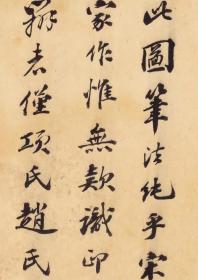 此圖筆法純乎宋
家作惟無款識印
辨者僅項氏趙氏